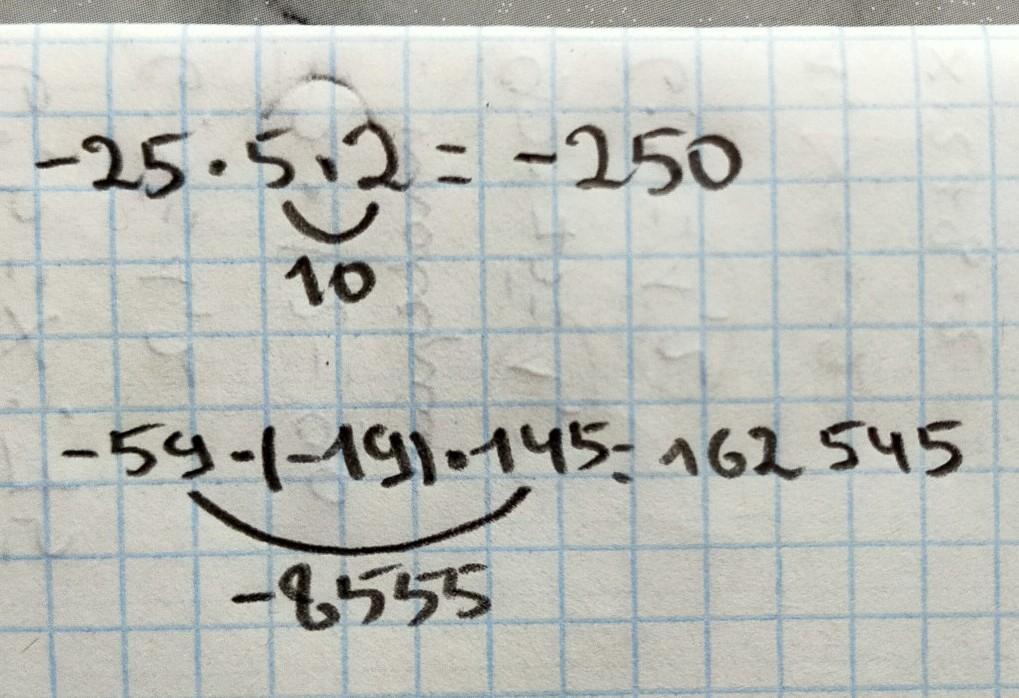 -25·5·2 = -250
10
-59·(-19)·145= 162 545
-8555